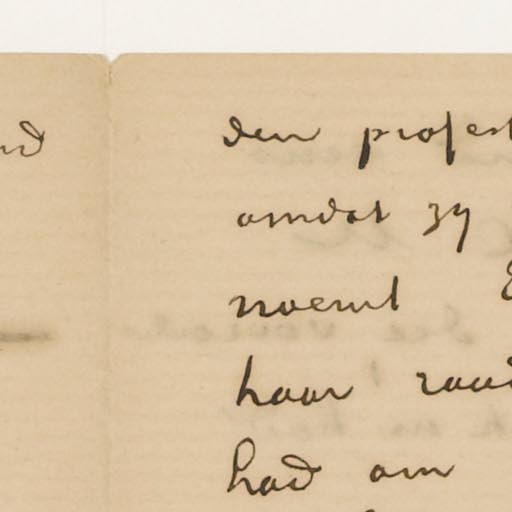 den profes
omdat zy
noemt
haar raad
had om